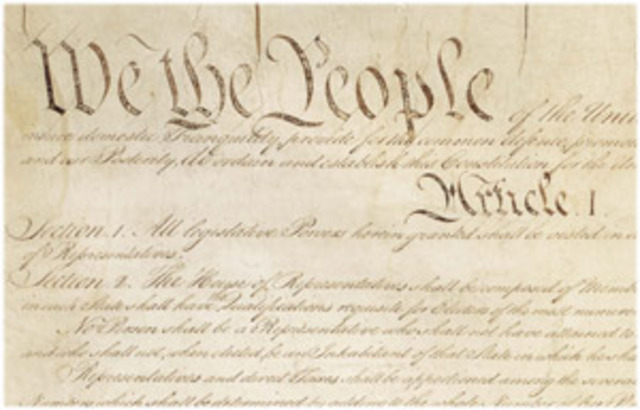 We the People of the Unite
insure domestic Tranquility, provide for the common defence, promot
and our Posterity, do ordain and establish this Constitution for the Un
Article. I.
Section. 1. All legislative Powers herein granted shall be vested in a
of Representatives.
Section. 2. The House of Representatives shall be composed of Memb
in each State shall have Qualifications requisite for Electors of the most numero
No Person shall be a Representative who shall not have attained to
and who shall not, when elected, be an Inhabitant of that State in which he sha
Representatives and direct Taxes shall be apportioned among the severa
Numbers, which shall be determined by adding to the whole Number of free P